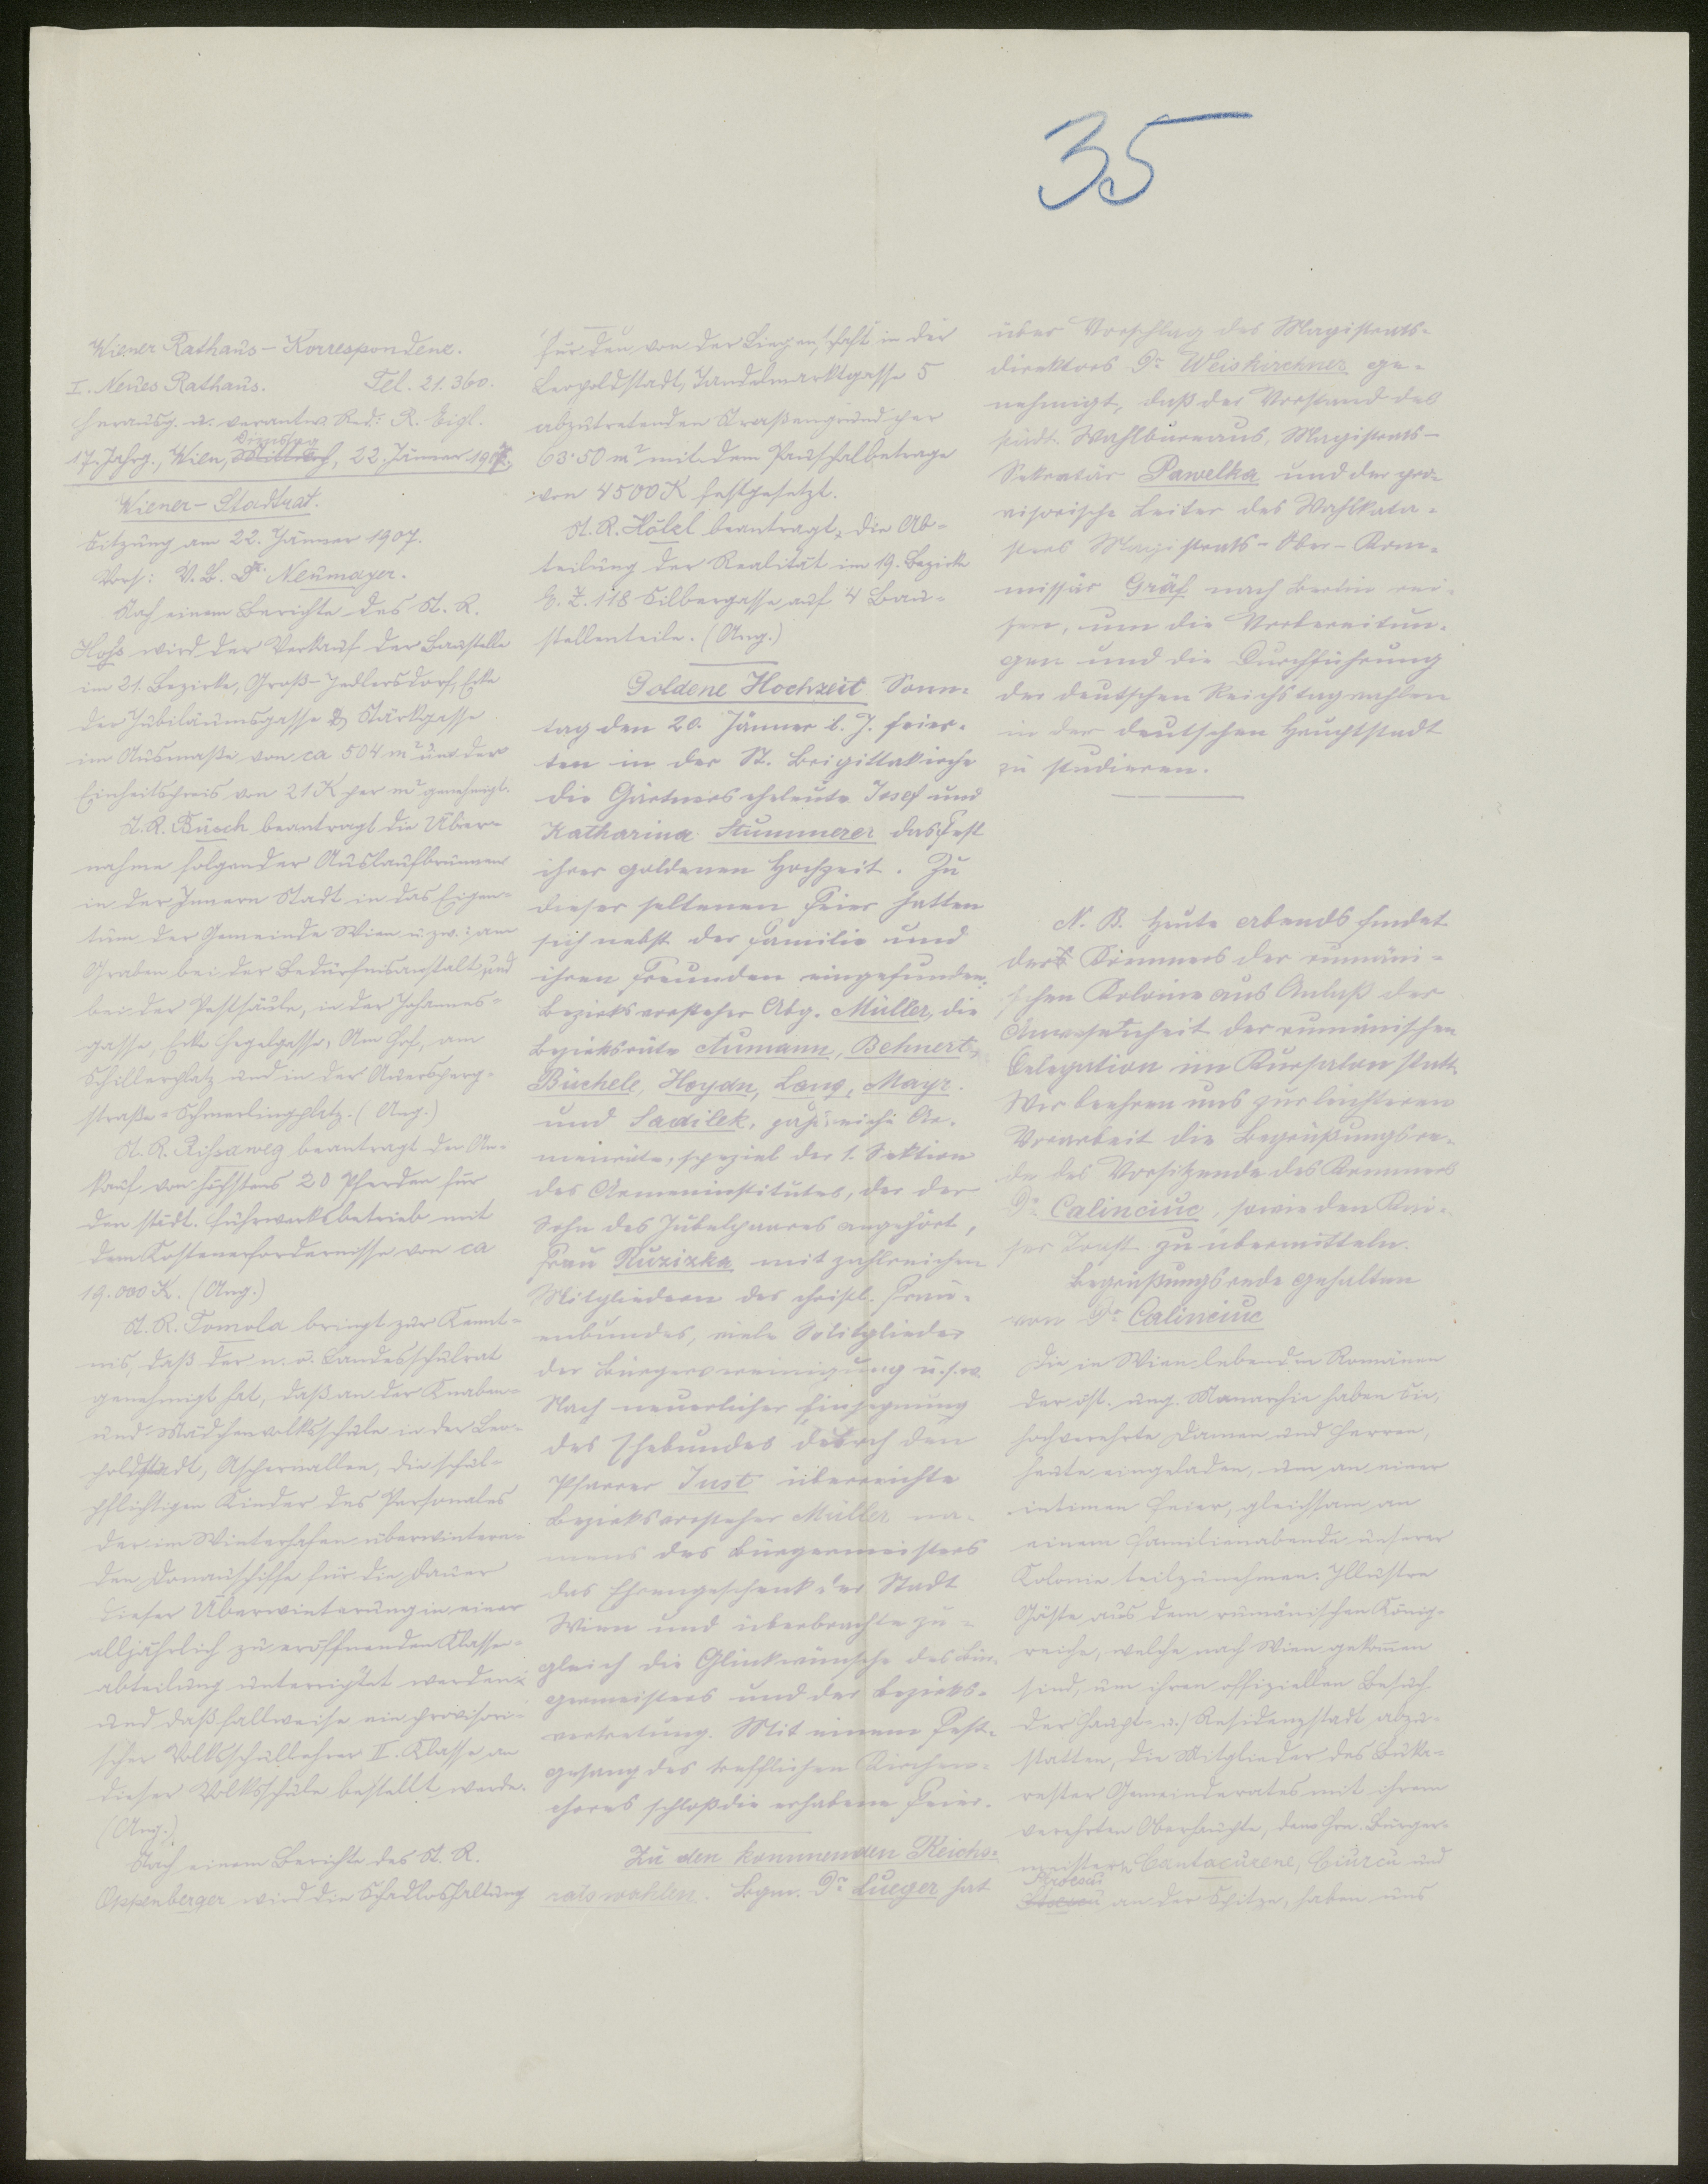 35
Wiener Rathaus-Korrespondenz.
I. Neues Rathaus. Tel. 21.360.
Herausg. u. verantw. Red: R. Eigl.
Dienstag
17. Jahrg., Wien, Mittwoch, 22. Jänner 1907.
Wiener-Stadtrat.
Sitzung am 22. Jänner 1907.
Vors: V.B. Dr. Neumayer.
Nach einem Berichte des St. R.
Hoß wird der Verkauf der Baustelle
im 21. Bezirke, Groß-Jedlersdorf, Ecke
der Jubiläumsgasse & Stärkgasse
im Ausmaße von ca 504 m² um den
Einheitspreis von 21 K per m² genehmigt.
St. R. Busch beantragt die Über-
nahme folgender Auslaufbrunnen
in der Innern Stadt in das Eigen-
tum der Gemeinde Wien u. zw.: am
Graben bei der Bedürfnisanstalt und
bei der Pestsäule, in der Johannes-
gasse, Ecke Hegelgasse, Am Hof, am
Schillerplatz und in der Auersperg-
straße-Schmerlingplatz. (Ang.)
St. R. Rissaweg beantragt den An-
kauf von höchstens 20 Pferden für
den städt. Fuhrwerksbetrieb mit
dem Kostenerfordernisse von ca
19.000 K. (Ang.)
St. R. Tomola bringt zur Kennt-
nis, daß der n. ö. Landesschulrat
genehmigt hat, daß an der Knaben-
und Mädchenvolksschule in der Leo-
poldstadt, Aspernallee, die schul-
pflichtigen Kinder des Personales
der im Winterhafen überwintern-
den Donauschiffe für die Dauer
dieser Überwinterung in einer
alljährlich zu eröffnenden Klassen-
abteilung unterrichtet werden
und daß fallweise ein provisori-
scher Volksschullehrer II. Klasse an
dieser Volksschule bestellt werde.
(Ang.)
Nach einem Berichte des St. R.
Oppenberger wird die Schadloshaltung
für den von der Liegenschaft in der
Leopoldstadt, Tandelmarktgasse 5
abzutretenden Straßengrund per
63.50 m² mit dem Pauschalbetrage
von 4500 K festgesetzt.
St. R. Hölzl beantragt, die Ab-
teilung der Realität im 19. Bezirke
E. Z. 118 Silbergasse auf 4 Bau-
stellenteile. (Ang.)
Goldene Hochzeit Sonn-
tag den 20. Jänner l. J. feier-
ten in der St. Brigittakirche
die Gärtnerseheleute Josef und
Katharina Stummerer das Fest
ihrer goldenen Hochzeit. Zu
dieser seltenen Feier hatten
sich nebst der Familie und
ihren Freunden eingefunden:
Bezirksvorsteher Abg. Müller, die
Bezirksräte Aumann, Behnert,
Büchele, Hoydn, Lang, Mayr.
und Sadilek, zahlreiche Ar-
menräte, speziel der 1. Sektion
des Armeninstitutes, der der
Sohn des Jubelpaares angehört,
Frau Ruzizka mit zahlreichen
Mitgliedern des christl. Frau-
enbundes, viele Mitglieder
der Bürgervereinigung u. s. w.
Nach neuerlicher Einsegnung
des Ehebundes durch den
Pfarrer Just überreichte
Bezirksvorsteher Müller na-
mens des Bürgermeisters
das Ehrengeschenk der Stadt
Wien und überbrachte zu-
gleich die Glückwünsche des Bür-
germeisters und der Bezirks-
vertretung. Mit einem Fest-
gesang des trefflichen Kirchen-
chores schloß die erhabene Feier.
Zu den kommenden Reichs-
ratswahlen. Bgm. Dr. Lueger hat
über Vorschlag des Magistrats-
direktors Dr. Weiskirchner ge-
nehmigt, daß der Vorstand des
städt. Wahlbureaus, Magistrats-
Sekretär Pawelka und der pro-
visorische Leiter des Wahlkata-
sters Magistrats-Ober-Kom-
missär Gräf nach Berlin rei-
sen, um die Vorbereitun-
gen und die Durchführung
der deutschen Reichstagwahlen
in der deutschen Hauptstadt
zu studieren.
N. B. Heute abends findet
der Kommers der rumäni-
schen Kolonie aus Anlaß der
Anwesenheit der rumänischen
Delegation im Kursalon statt.
Wir beehren uns zur leichteren
Vorarbeit die Begrüßungsre-
de des Vorsitzende des Kommers
Dr. Calinciuc, sowie den Kai-
ser Toast zu übermitteln.
Begrüßungsrede gehalten
von Dr. Calinciuc
Die in Wien lebenden Romänen
der öst. ung. Monarchie haben Sie,
hochverehrte Damen und Herren,
heute eingeladen, um an einer
intimen Feier, gleichsam an
einem Familienabende unserer
Kolonie teilzunehmen. Illustre
Gäste aus dem rumänischen König-
reiche, welche nach Wien gekommen
sind, um ihren offiziellen Besuch
der Haupt- u. Residenzstadt abzu-
statten, die Mitglieder des Buka-
rester Gemeinderates mit ihrem
verehrten Oberhaupte, dem Hrn. Bürger-
meistern Cantacuzene, Ciurcu und
an der Spitze, haben uns